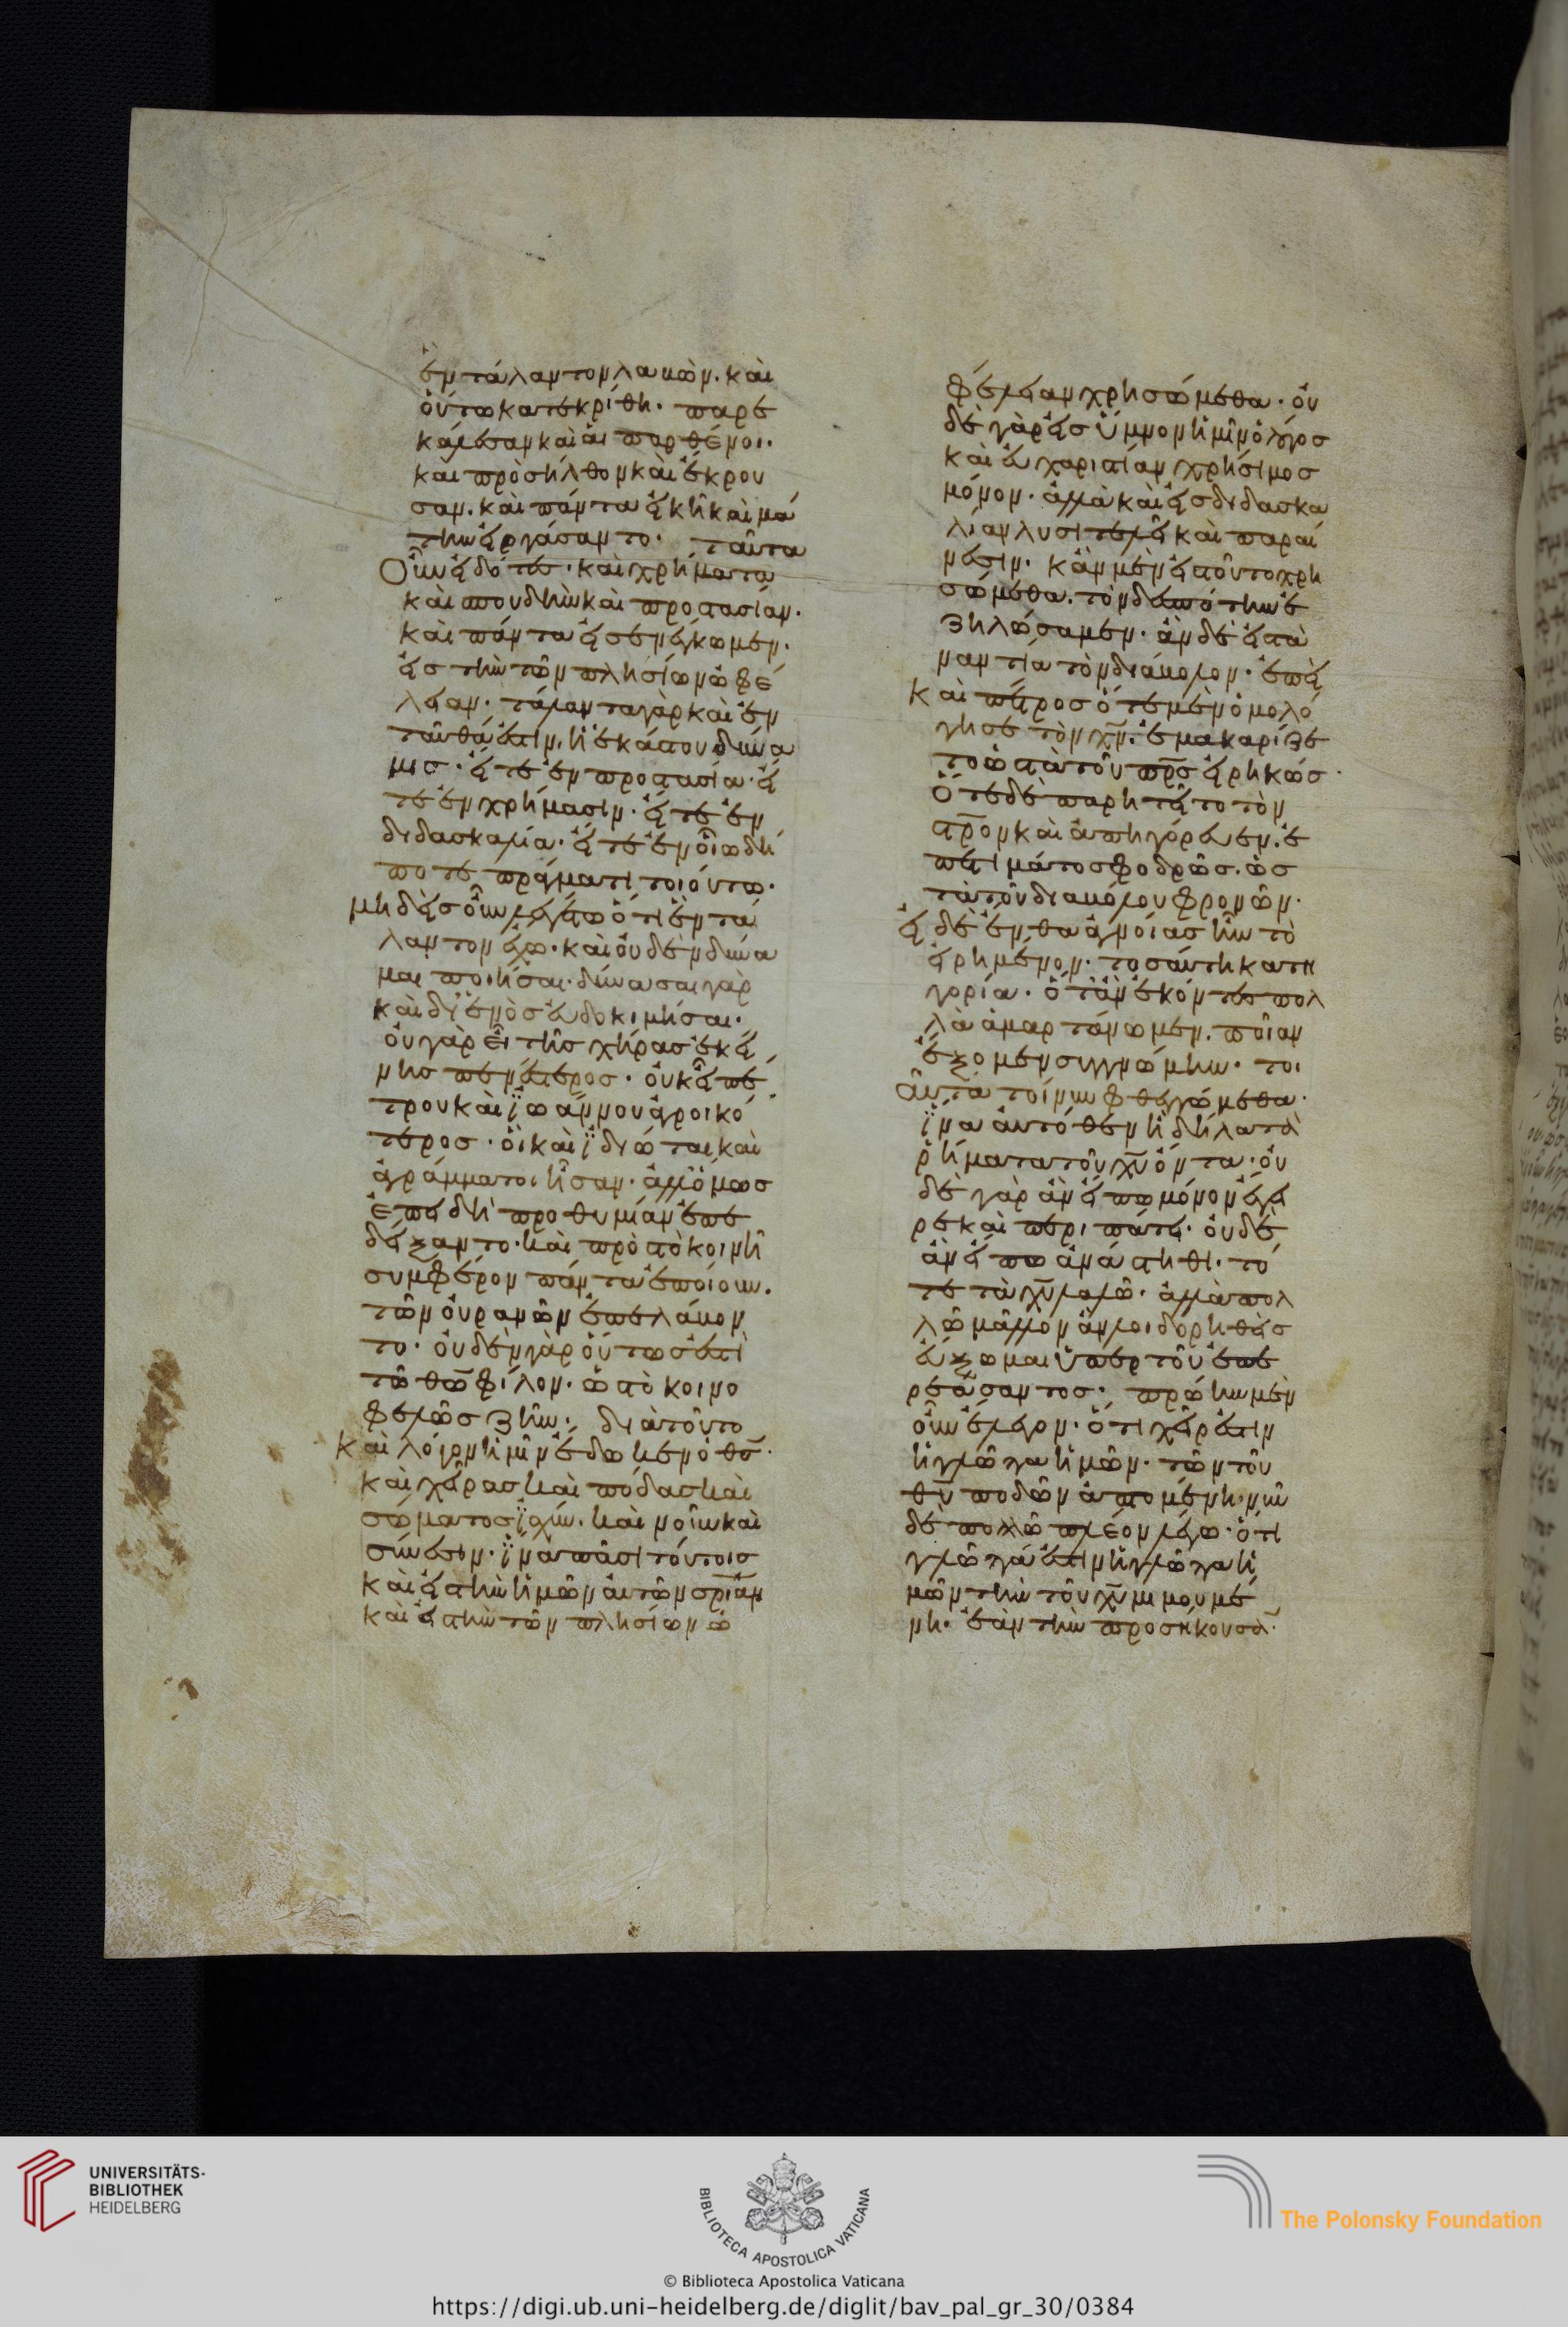 ἓν τάλαντον λαβὼν. καὶ
οὕτω κατεκρίθη. παρε
κάλεσαν καὶ αἱ παρθένοι.
καὶ προσῆλθον καὶ ἔκρου
σαν. καὶ πάντα εἰκῆ καὶ μά
την εἰργάσαντο. ταῦτα
Οὖν εἰδότες. καὶ χρήματα
καὶ σπουδὴν καὶ προστασίαν.
καὶ πάντα εἰσενέγκωμεν.
εἰς τὴν τῶν πλησίον ὠφέ
λειαν. τάλαντα γὰρ καὶ ἐν
ταῦθά ἐστιν. ἡ ἑκάστου δύνα
μις. εἴτε ἐν προστασία. εἴ
τε ἐν χρήμασιν. εἴτε ἐν
διδασκαλία. εἴτε ἐν οἵω δή
ποτε πράγματι τοιούτω.
μηδεὶς οὖν λεγέτω ὅτι ἓν τά
λαντον ἔχω. καὶ οὐδὲν δύνα
μαι ποιῆσαι. δύνασαι γὰρ
καὶ δι ἑνὸς εὐδοκιμῆσαι.
οὐ γὰρ εἶ τῆς χήρας ἐκεί
νης πενέστερος. οὐκ εἶ πέ
τρου καὶ ἰωάννου ἀγροικό
τερος. οἳ καὶ ἰδιῶται καὶ
ἀγράμματοι ἦσαν. ἀλλ ὅμως
ἐπειδὴ προθυμίαν ἐπε
δείξαντο. καὶ πρὸς τὸ κοινῆ
συμφέρον πάντα ἐποίουν.
τῶν οὐρανῶν ἐπελάβον
το. οὐδὲν γὰρ οὕτως ἐστὶ
τῶ θω φίλον. ὡς τὸ κοινω
φελῶς ζῆν. διὰ τοῦτο
καὶ λόγον ἡμῖν ἔδωκεν ὁ θς.
καὶ χεῖρας καὶ πόδας καὶ
σώματος ἰσχύν. καὶ νοῦν καὶ
σύνεσιν. ἵνα πᾶσι τούτοις
καὶ εἰς τὴν ἡμῶν αὐτῶν σριαν
καὶ εἰς τὴν τῶν πλησίον ὠ
φέλειαν χρησώμεθα. οὐ
δὲ γὰρ εἰς ὕμνον ἡμῖν ὁ λόγος
καὶ εὐχαριστίαν χρήσιμος
μόνον. ἀλλὰ καὶ εἰς διδασκα
λίαν λυσιτελεῖ καὶ παραί
νεσιν. κἂν μὲν εἰς τοῦτο χρη
σώμεθα. τὸν δεσπότην ἐ
ζηλώσαμεν. ἂν δὲ εἰς τὰ
ναντία τὸν διάβολον. ἐπεὶ
καὶ πέτρος ὅτε μὲν ὁμολό
γησε τὸν χν. ἐμακαρίζε
το ὡς τὰ τοῦ πρς εἰρηκώς.
Ὅτε δὲ παρητεῖτο τὸν
στρον καὶ ἀπηγόρευεν. ἐ
πετιμᾶτο σφοδρῶς. ὡς
τὰ τοῦ διαβόλου φρονῶν.
εἰ δὲ ἔνθα ἀγνοίας ἦν τὸ
εἰρημένον. τοσαύτη κατη
γορία. ὅταν ἑκόντες πολ
λὰ ἁμαρτάνωμεν. ποίαν
ἕξομεν συγγνώμην. τοι
αῦτα τοίνυν φθεγγώμεθα.
ἵνα αὐτόθεν ἦ δῆλα τὰ
ῥήματα τοῦ χυ ὄντα. οὐ
δὲ γὰρ ἂν εἴπω μόνον ἔγει
ρε καὶ περιπάτει. οὐδὲ
ἂν εἴπω ἀνάστηθι. τό
τε τὰ χυ λαλῶ. ἀλλὰ πολ
λῶ μᾶλλον ἂν λοιδορηθεὶς
εὔξωμαι ὑπὲρ τοῦ ἐπε
ρεάσαντος. πρώην μὲν
οὖν ἔλεγον. ὅτι χείρ ἐστιν
ἡ γλῶττα ἡμῶν. τῶν τοῦ
θυ ποδῶν ἁπτομένη. νῦν
δὲ πολλῶ πλέον λέγω. ὅτι
γλῶττά ἐστιν ἡ γλῶττα ἡ
μῶν τὴν τοῦ χυ μιμουμέ
νη. ἐὰν τὴν προσήκουσα.
UNIVERSITÄTS-
BIBLIOTHEK
HEIDELBERG
BIBLIOTECA APOSTOLICA VATICANA
The Polonsky Foundation
© Biblioteca Apostolica Vaticana
https://digi.ub.uni-heidelberg.de/diglit/bav_pal_gr_30/0384